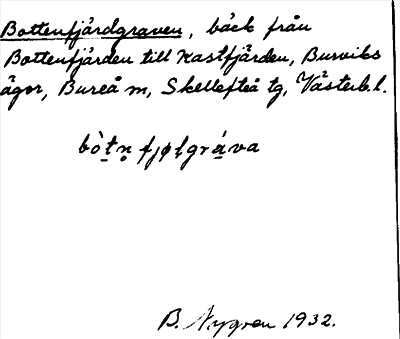 Bottenfjärdgraven, bäck från
Bottenfjärden till Kastfjärden, Burviks
ägor, Bureå sn, Skellefteå tg, Västerb. l.
bò̱ṯn̥ fjøḷgrá̱va
B. Nygren 1932.